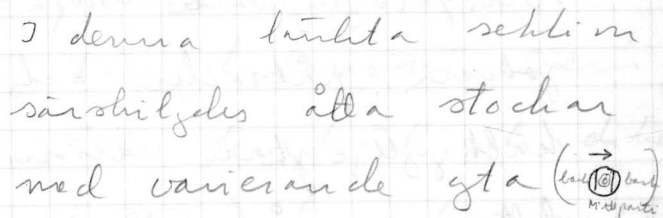 I denna tänkta sektion
särskilgdes åtta stockar
med varierande yta (back back)
Mittparti